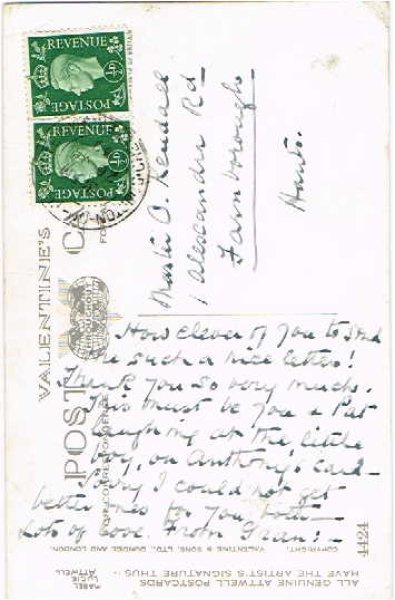 REVENUE
½D ½D
POSTAGE
REVENUE
½D ½D
POSTAGE
VALENTINE'S
POST CA
FOR CORRESPONDENCE
Master D. Kendall
1 Alexandra Rd
Farnborough
Hants.
How clever of you to send
me such a nice letter!
Thank you so very much.
This must be you & Pat
laughing at the little
boy, on Anthony's card–
Sorry I could not get
better ones for you both–
Lots of love. From Gran:–
COPYRIGHT. VALENTINE & SONS, LTD., DUNDEE AND LONDON.
4424
ALL GENUINE ATTWELL POSTCARDS
HAVE THE ARTIST'S SIGNATURE THUS :-
MABEL
LUCIE
ATTWELL